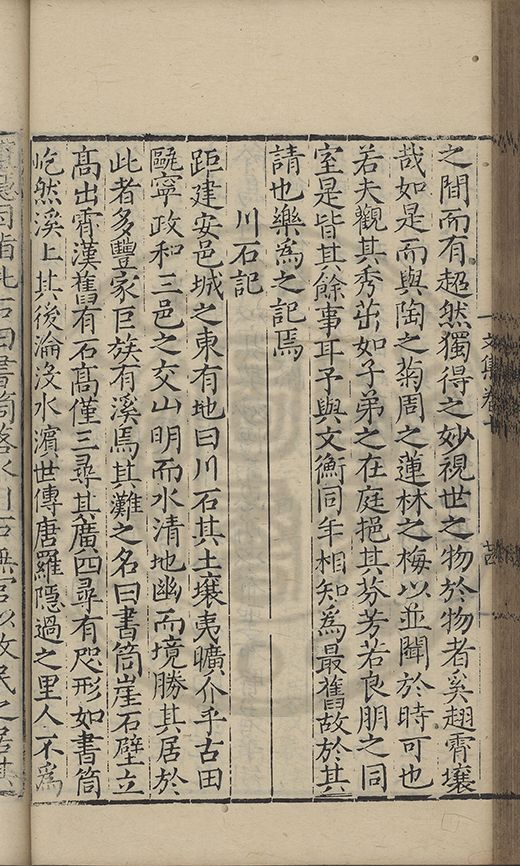 之間而有超然獨得之妙視世之物於物者奚趐霄壤
哉如是而與陶之菊周之蓮林之梅以並聞於時可也
若夫觀其秀茁如子弟之在庭挹其芬芳若良朋之同
室是皆其餘事耳予與文衡同年相知為最舊故於其
請也樂為之記焉
川石記
距建安邑城之東有地曰川石其土壤夷曠介乎古田
甌寧政和三邑之交山明而水清地幽而境勝其居於
此者多豐家巨族有溪焉其灘之名曰書筒崖石壁立
高出霄漢舊有石高僅三尋其廣四尋有咫形如書筒
屹然溪上其後淪没水濵世傳唐羅隱過之里人不為